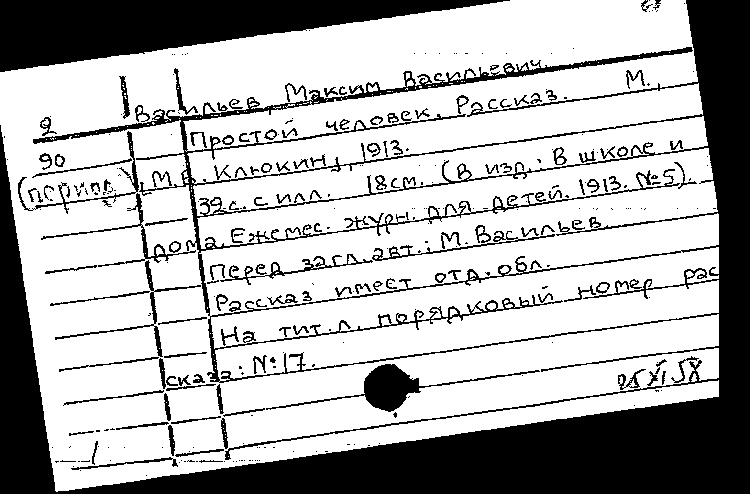 2
Васильев, Максим Васильевич.
90
Простой человек. Рассказ. М.,
(период)
[М.В. Клюкин], 1913.
32с. с илл. 18см. (В изд.: В школе и
дома. Ежемес. журн. для детей. 1913. №5).
Перед загл. авт.: М. Васильев.
Рассказ имеет отд. обл.
На тит. л. порядковый номер рас
сказа: №17.
1